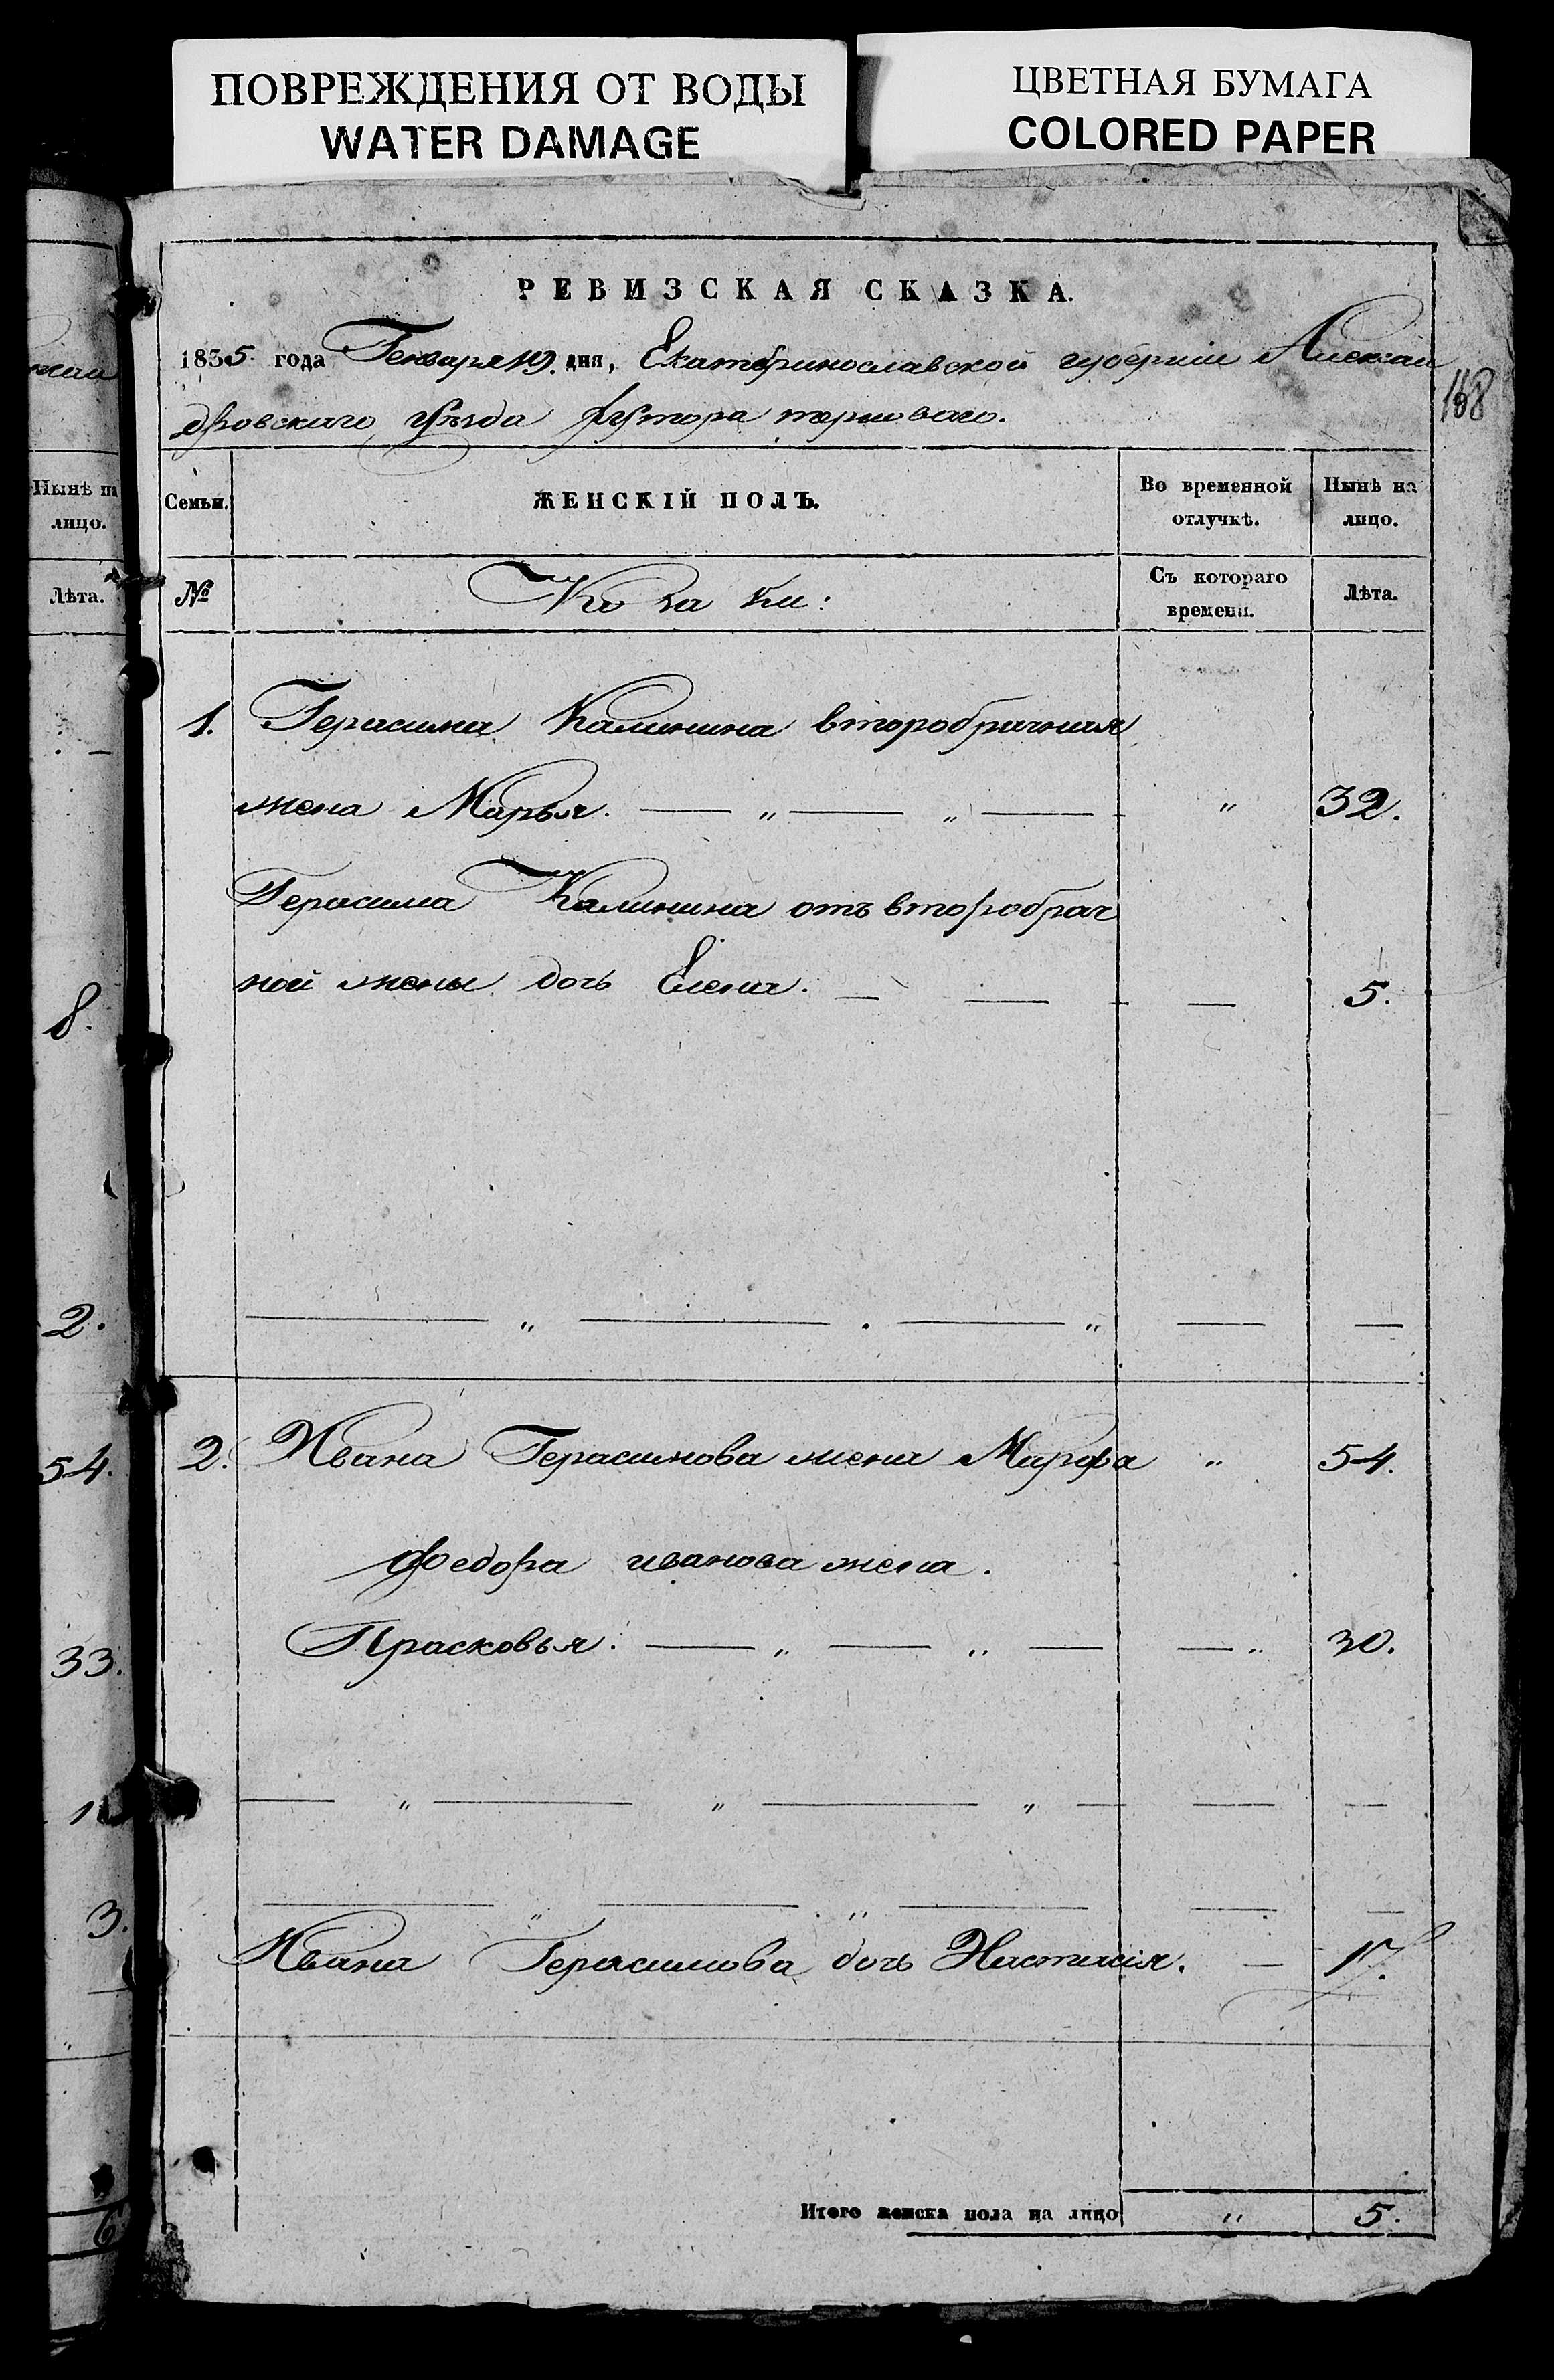 ПОВРЕЖДЕНИЯ ОТ ВОДЫ
WATER DAMAGE
ЦВЕТНАЯ БУМАГА
COLORED PAPER
РЕВИЗСКАЯ СКАЗКА.
1835 года Генваря 19. дня, Екатеринославской губернии Алексан
дровскаго уѣзда хутора терноваго.
168
Семьи.
ЖЕНСКІЙ ПОЛЪ.
Во временной
отлучкѣ.
Ныне на
лицо.
№
Козаки:
Съ котораго
времени.
Лѣта.
1. Герасима Калинина второбрачная
жена Марья. — „ — „ — „ 32.
Герасима Калинина отъ второбрач
ной жены дочь Елена. — — — 5.
— „ — . — „ — —
2. Ивана Герасимова жена Марфа „ 54.
Федора иванова жена.
Прасковья. — „ — „ — — „ 30.
— „ — „ — „ — — —
— „ — „ — — —
Ивана Герасимова дочь Настасія. — 17.
Итого женска пола на лицо „ 5.
Нынѣ на
лицо.
Лѣта.
8.
2.
54.
33.
3.
6